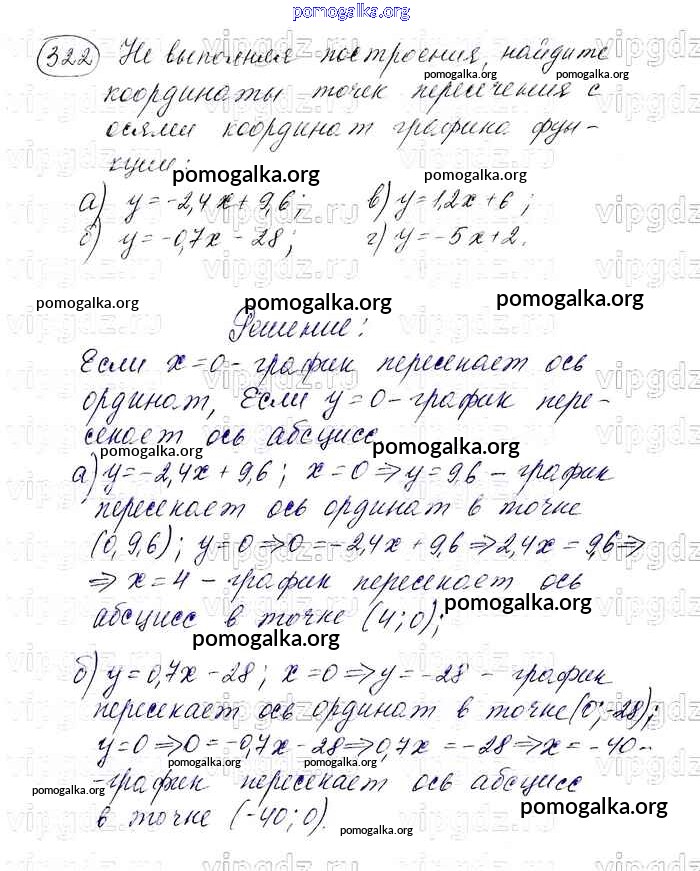 pomogalka.org
322 Не выполняя построения, найдите
pomogalka.org pomogalka.org
координаты точек пересечения с
осями координат графика фун-
кции:
pomogalka.org pomogalka.org
а) y = -2,4x + 9,6; в) y = 1,2x + 6;
б) y = -0,7x - 28; г) y = -5x + 2.
pomogalka.org pomogalka.org pomogalka.org
Решение:
Если x = 0 - график пересекает ось
ординат, Если y = 0 - график пере-
секает ось абсцисс
pomogalka.org
а) y = -2,4x + 9,6; x = 0 ⇒ y = 9,6 - график
пересекает ось ординат в точке
(0, 9,6); y = 0 ⇒ 0 = -2,4x + 9,6 ⇒ 2,4x = 9,6 ⇒
⇒ x = 4 - график пересекает ось
pomogalka.org
абсцисс в точке (4; 0);
pomogalka.org
б) y = 0,7x - 28; x = 0 ⇒ y = -28 - график
пересекает ось ординат в точке (0; -28);
y = 0 ⇒ 0 = -0,7x - 28 ⇒ 0,7x = -28 ⇒ x = -40 -
pomogalka.org pomogalka.org
-график пересекает ось абсцисс
pomogalka.org pomogalka.org
в точке (-40; 0).
pomogalka.org
vipgdz.ru